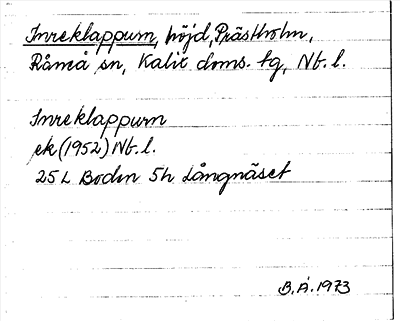 Inreklappum, höjd, Prästholm,
Råneå sn, Kalix doms. tg, Nb. l.
Inreklappum
ek (1952) Nb. l.
25 L Boden 5h Långnäset
B. Å. 1973